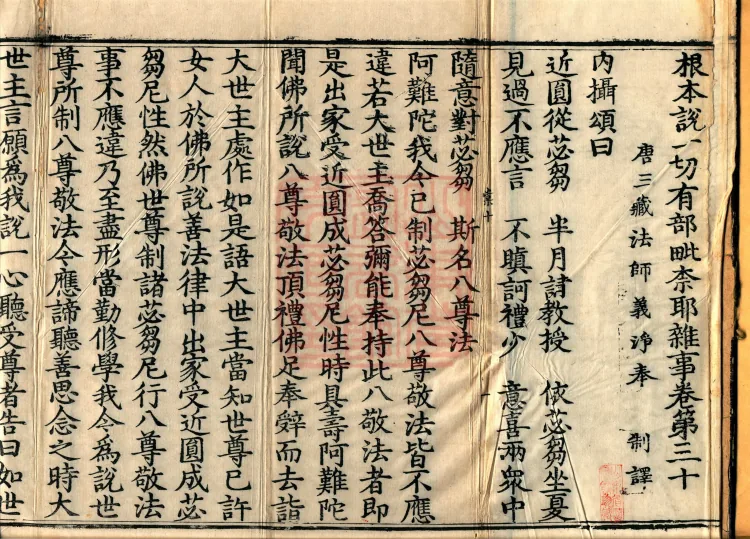 根本說一切有部毗奈耶雜事卷第三十
唐三藏法師義淨奉 制譯
內攝頌曰
近圓從苾芻 半月請教授 依苾芻坐夏
見過不應言 不瞋訶禮少 意喜兩衆中
隨意對苾芻 斯名八尊法
阿難陀我今已制苾芻尼八尊敬法皆不應
違若大世主喬荅彌能奉持此八敬法者即
是出家受近圓成苾芻尼性時具壽阿難陀
聞佛所說八尊敬法頂禮佛足奉辤而去詣
大世主處作如是語大世主當知世尊已許
女人於佛所說善法律中出家受近圓成苾
芻尼性然佛世尊制諸苾芻尼行八尊敬法
事不應違乃至盡形當勤修學我今爲說世
尊所制八尊敬法今應諦聽善思念之時大
世主言願爲我說一心聽受尊者告曰如世